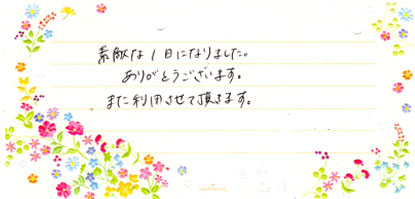 素敵な1日になりました。
ありがとうございます。
また利用させて頂きます。